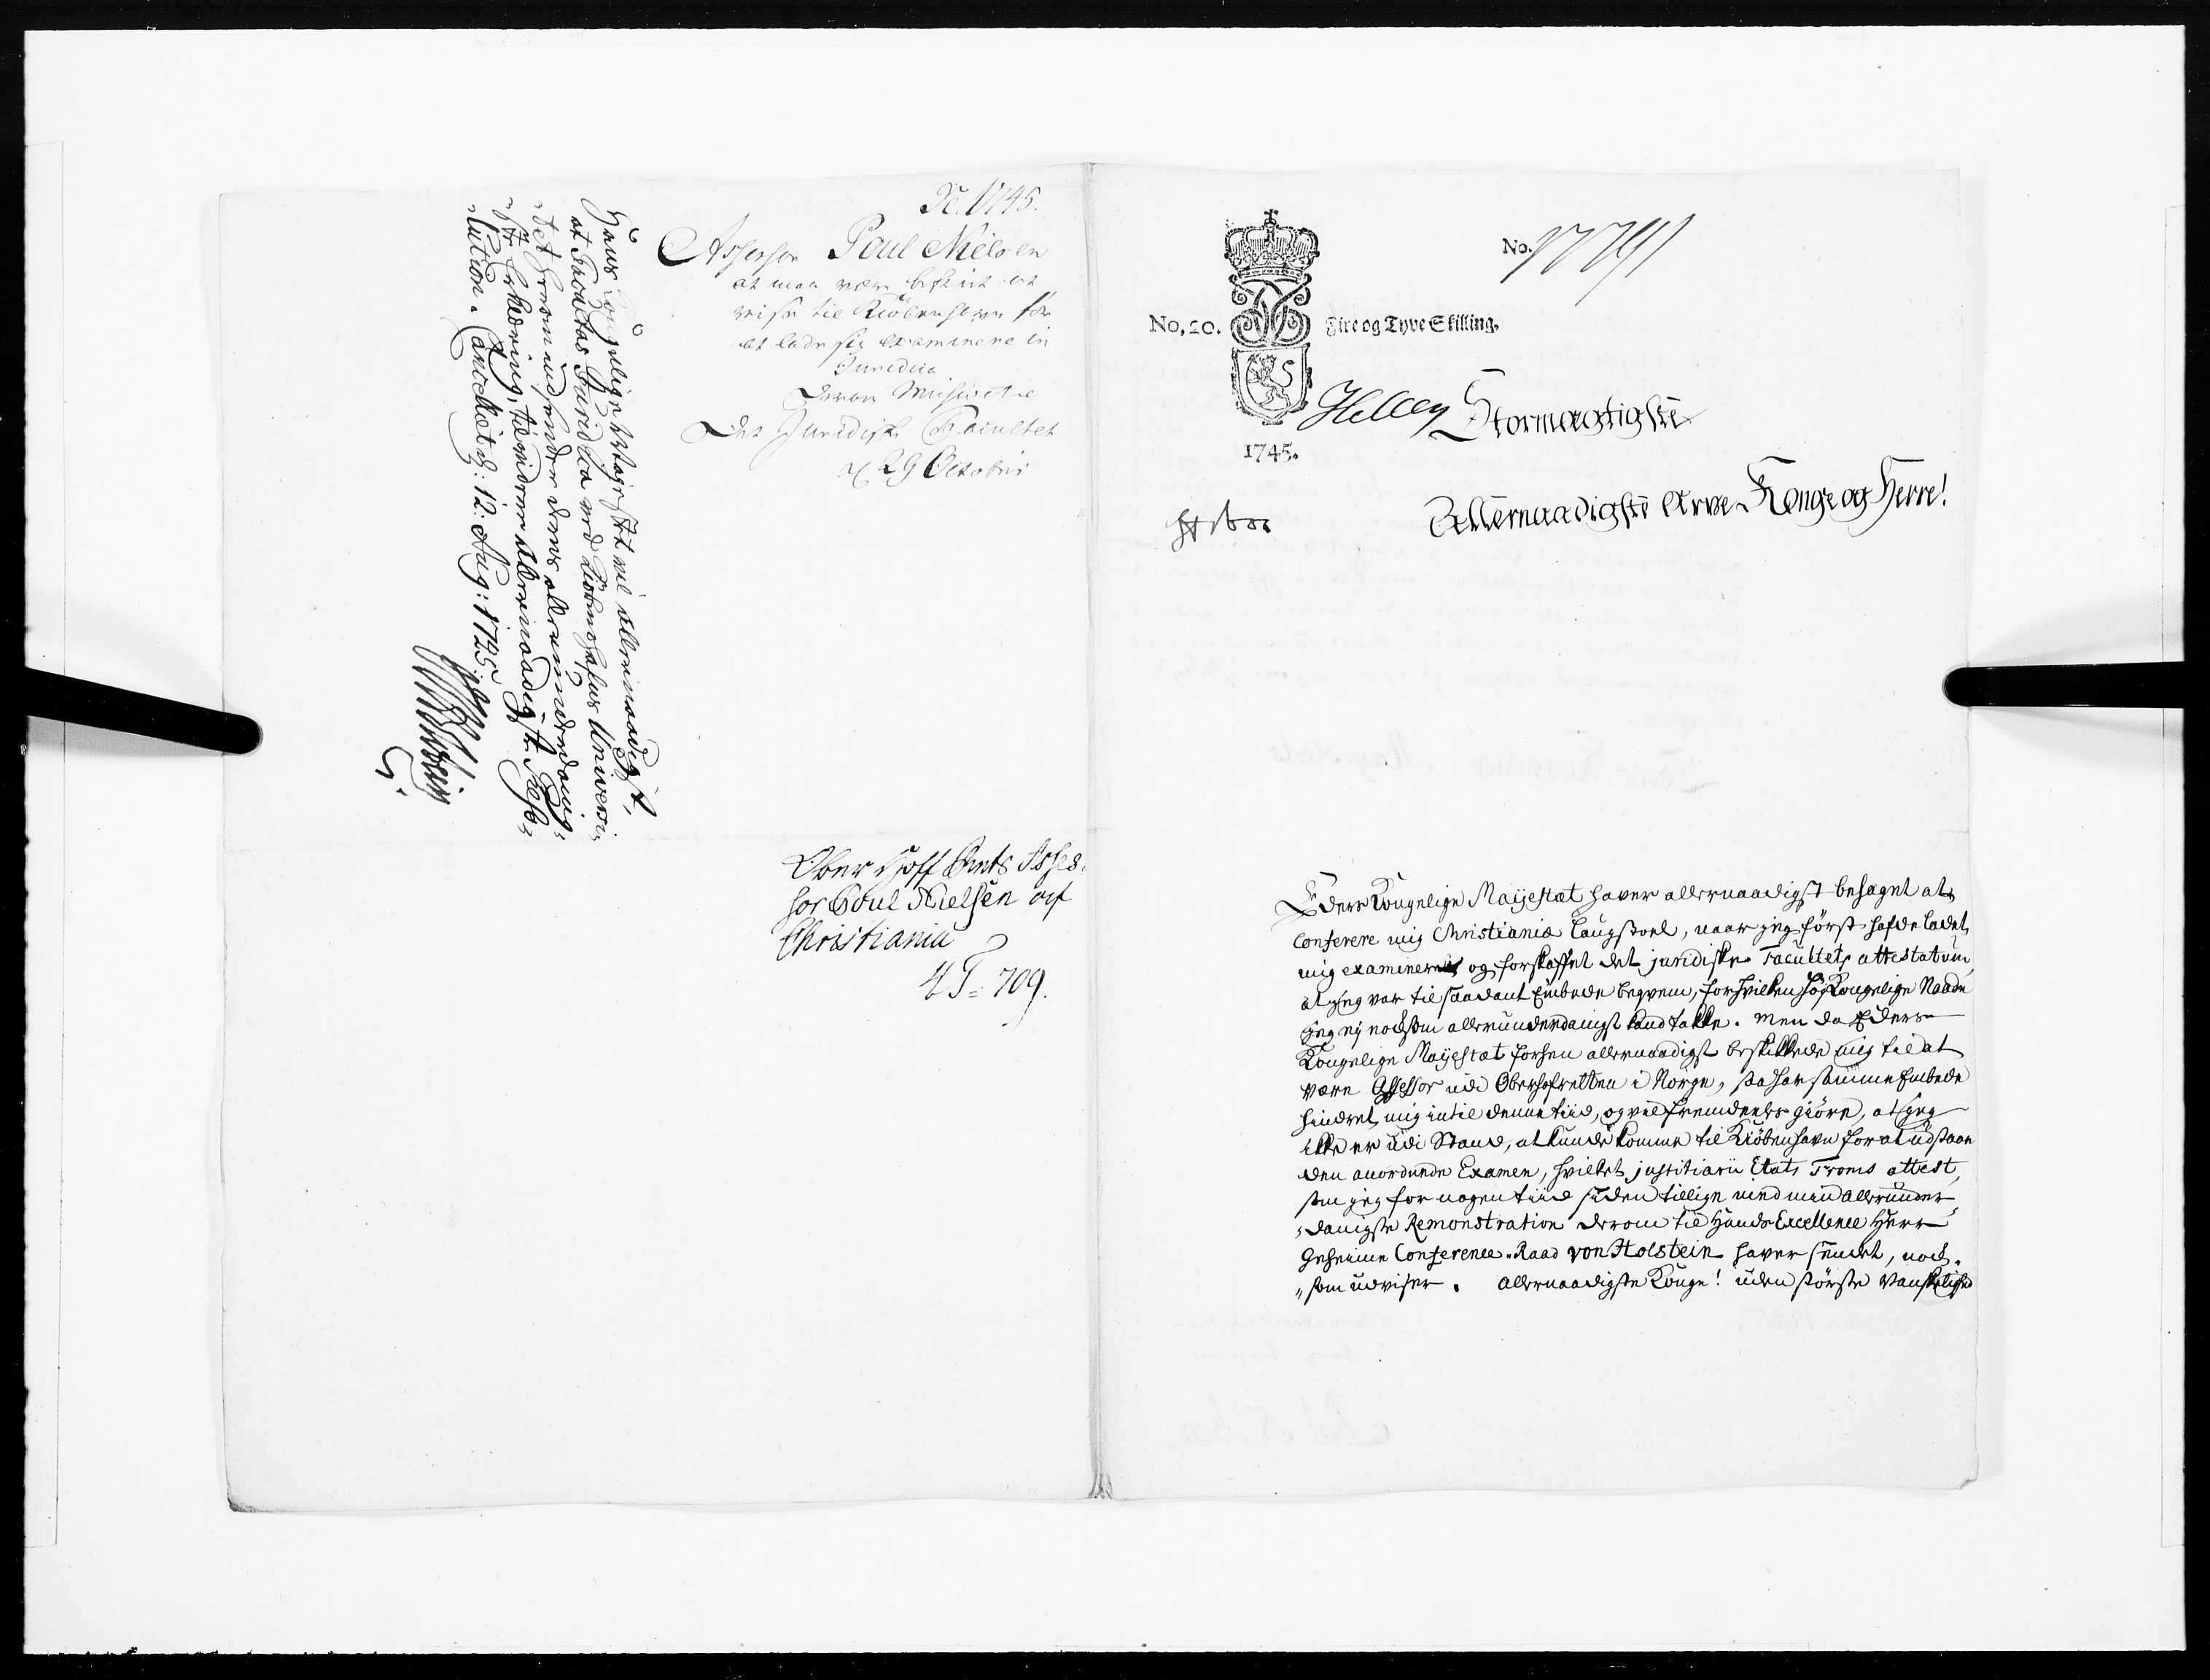 1745.
Assessor Poul Nielsen
at maa være befriet at
reise til Kiöbenhavn for
at lade sig examinere in
Juridica
Det Juridiske Facultet
29 Octobris
Hans Kongelige Mayestet vil allernaadigst,
at Facultas Juridica ved Kiöbenhafns Universi-
tet herom indsender dens allerunderdanig-
ste Erklæring, til videre allernaadigste Reso-
lution. Cancelliet d: 12: Aug: 1745.
Ober Hoff Rets Asses-
sor Poul Nielsen af
Christiania
4 S= 709.
No.
No. 20. Fire og Tyve Skilling.
1745.
Stormægtigste
Allernaadigste Arve Konge og Herre!
Eders Kongelige Mayestæt haver allernaadigst behaget at
conferere mig Christianiæ Laugstoel, naar jeg först hafde ladet
mig examinere og forskaffet det juridiske Facultets attestatum,
at jeg var til saadant Embede beqvem, for hvilken höj Kongelige Naade
jeg ej noksom allerunderdanigst kand takke. Men da Eders
Kongelige Mayestæt forhen allernaadigst beskikkede mig til at
være Assessor udi Oberhofretten i Norge, saa har samme Embede
hindret mig intil denne tiid, og vil fremdeeles giöre, at jeg
ikke er udi Stand, at kunde komme til Kiöbenhavn for at udstaae
den anordnede Examen, hvilket justitiarii Etats Troms attest,
som jeg for nogen tiid siden tillige med min allerunder-
danigste Remonstration derom til Hands Excellence Herr
Geheime Conference-Raad von Holstein haver sendt, nok-
som udviser. Allernaadigste Konge! uden störste Vanskelighed